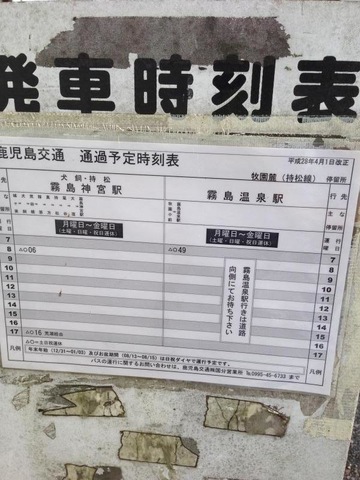 発車時刻表
鹿児島交通 通過予定時刻表
平成28年4月1日改正
行先 犬飼・持松 霧島神宮駅
霧島温泉駅 牧園麓(持松線) 停留所
行先
主な停留所
運行日 月曜日～金曜日 (土曜・日曜・祝日運休)
月曜日～金曜日 (土曜・日曜・祝日運休) 運行日
7 7
8 △○06 △○49 8
9 9
10 10
11 11
12 12
13 13
14 14
15 15
16 16
17 △○16 17
霧島温泉駅行きは道路
向側にてお待ち下さい
凡例 △○＝土日祝運休 凡例
年末年始(12/31～01/03) 及びお盆期間(08/13～08/15)は日祝ダイヤで運行予定です。
バスの運行に関するお問い合わせは、鹿児島交通㈱国分営業所 ℡0995-45-6733 まで